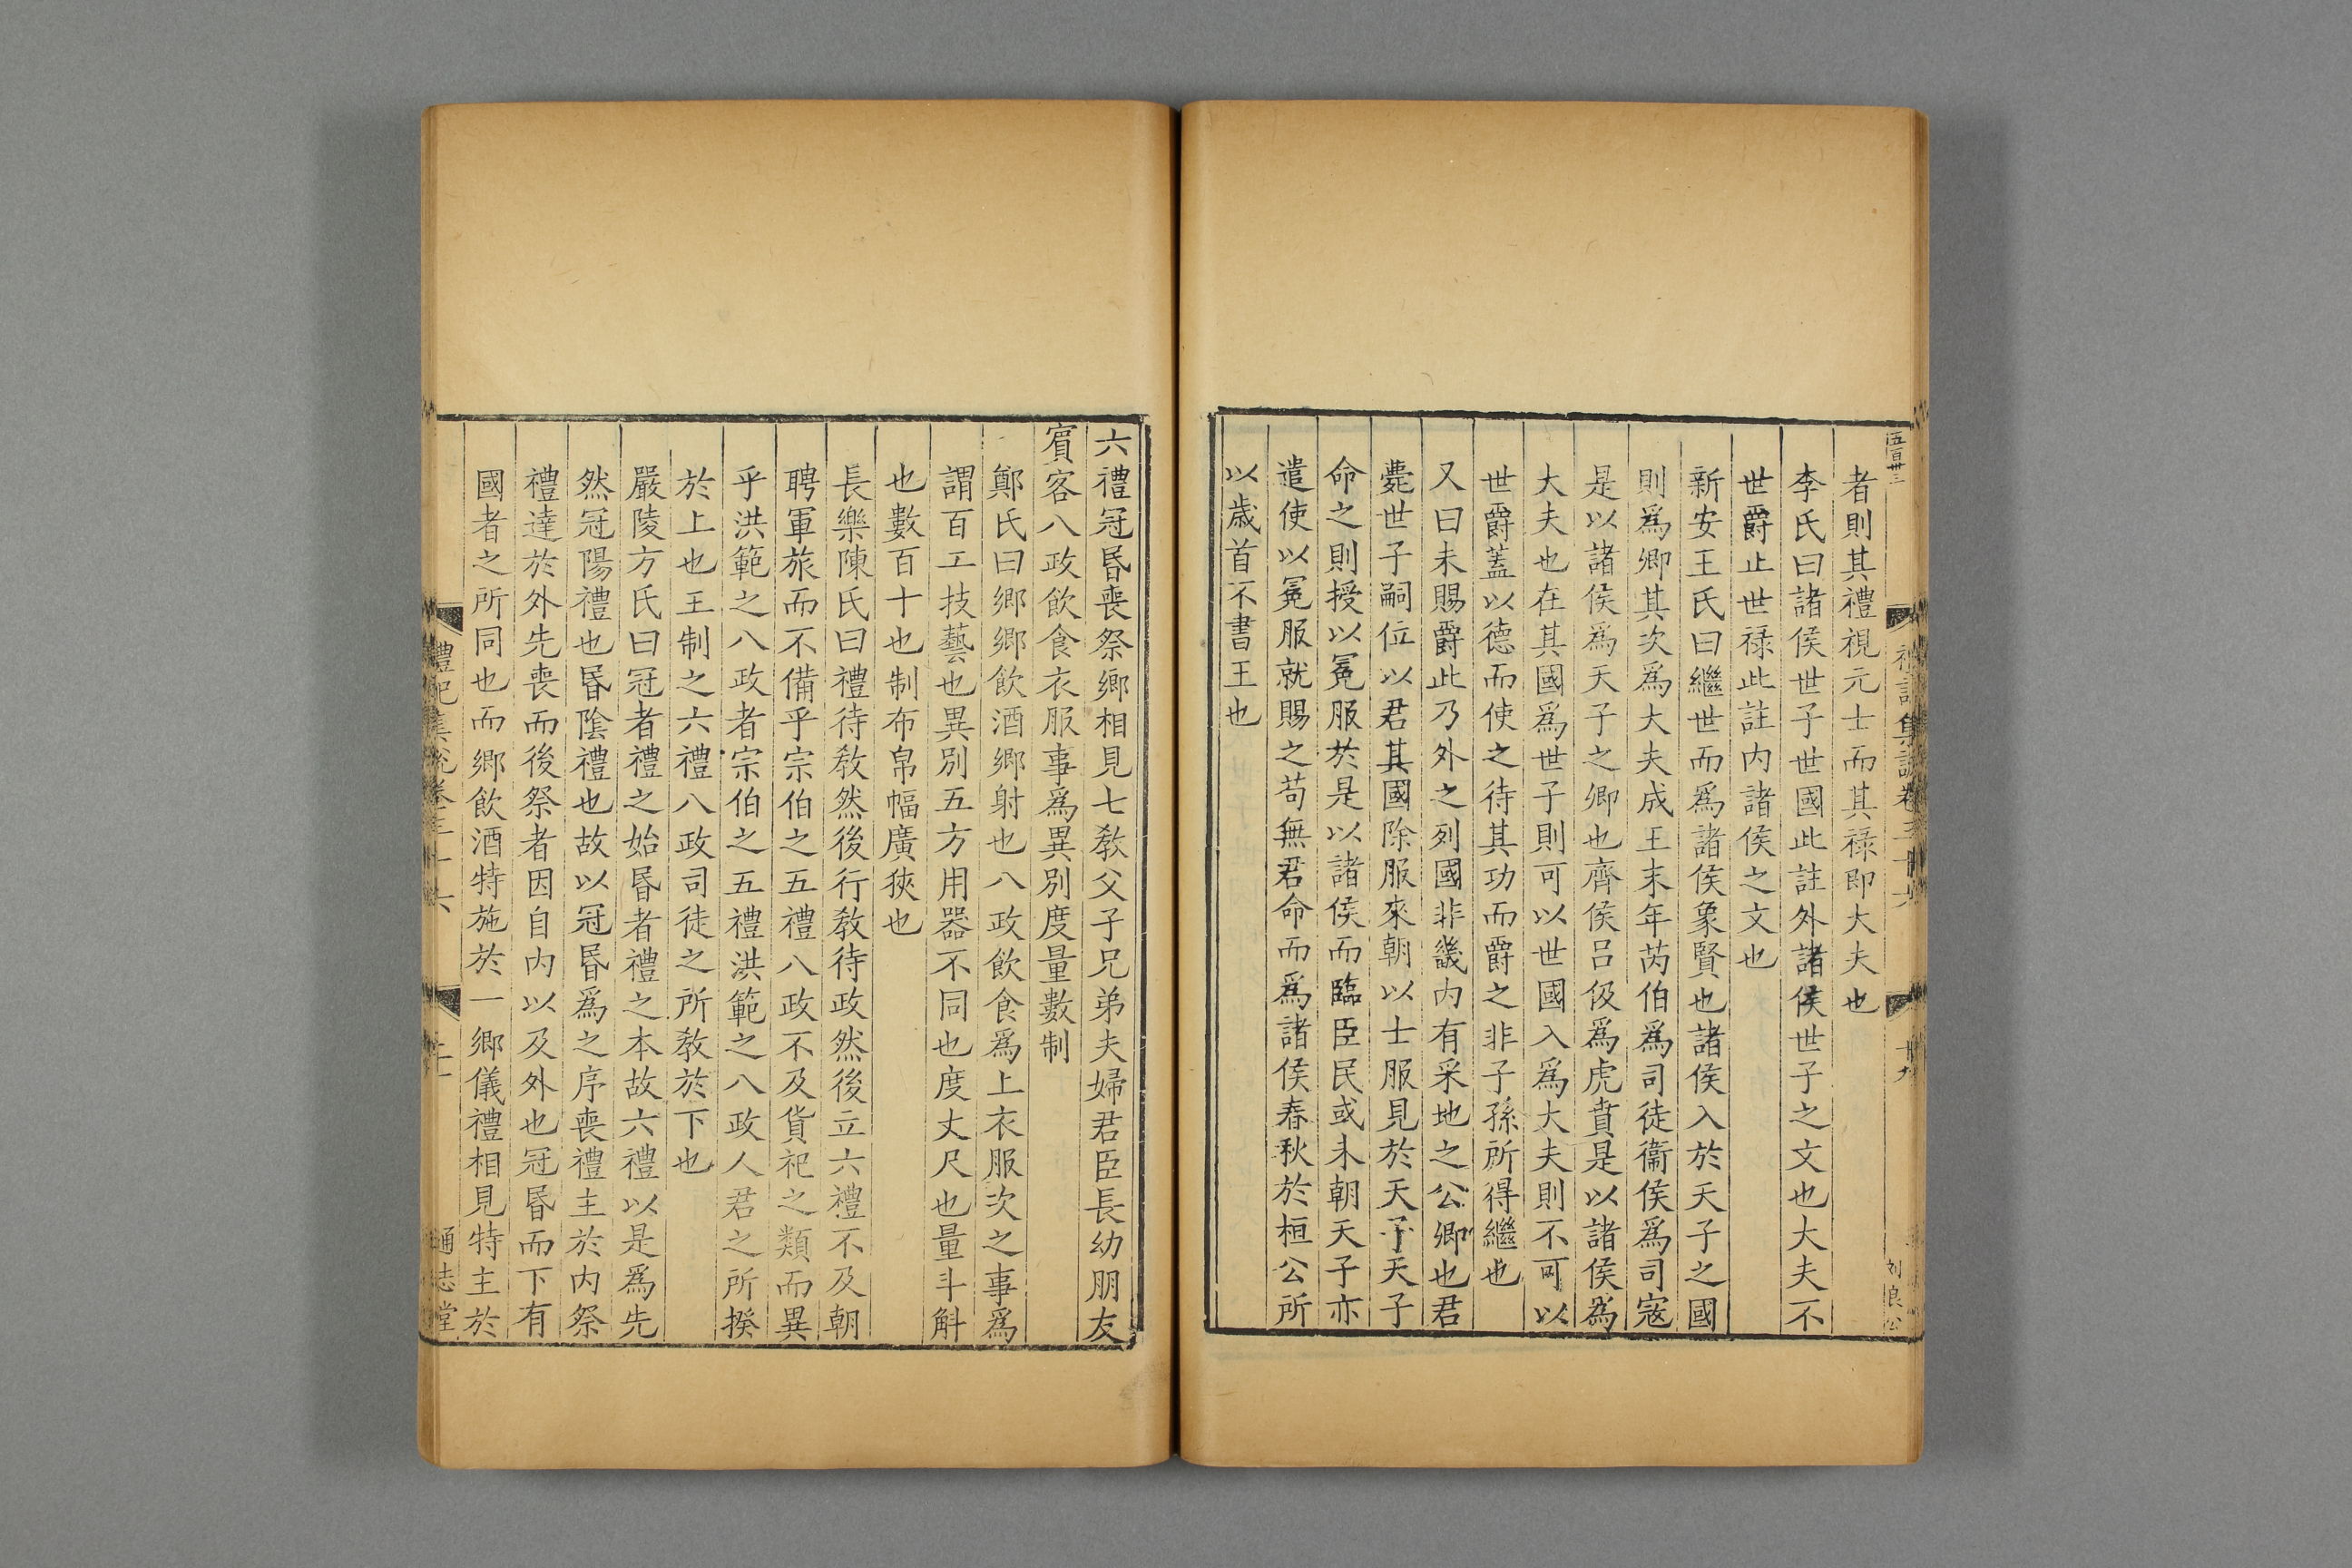 五百卅三
者則其禮視元士而其祿即大夫也
李氏曰諸侯世子世國此註外諸侯世子之文也大夫不
世爵止世祿此註內諸侯之文也
新安王氏曰繼世而爲諸侯象賢也諸侯入於天子之國
則爲卿其次爲大夫成王末年芮伯爲司徒衞侯爲司寇
是以諸侯爲天子之卿也齊侯呂伋爲虎賁是以諸侯爲
大夫也在其國爲世子則可以世國入爲大夫則不可以
世爵蓋以德而使之待其功而爵之非子孫所得繼也
又曰未賜爵此乃外之列國非畿內有采地之公卿也君
薨世子嗣位以君其國除服來朝以士服見於天子天子
命之則授以冕服於是以諸侯而臨臣民或未朝天子亦
遣使以冕服就賜之苟無君命而爲諸侯春秋於桓公所
以歲首不書王也
六禮冠昬喪祭鄉相見七敎父子兄弟夫婦君臣長幼朋友
賓客八政飲食衣服事爲異別度量數制
鄭氏曰鄉鄉飲酒鄉射也八政飲食爲上衣服次之事爲
謂百工技藝也異別五方用器不同也度丈尺也量斗斛
也數百十也制布帛幅廣狹也
長樂陳氏曰禮待敎然後行敎待政然後立六禮不及朝
聘軍旅而不備乎宗伯之五禮八政不及貨祀之類而異
乎洪範之八政者宗伯之五禮洪範之八政人君之所揆
於上也王制之六禮八政司徒之所敎於下也
嚴陵方氏曰冠者禮之始昬者禮之本故六禮以是爲先
然冠陽禮也昬陰禮也故以冠昬爲之序喪禮主於內祭
禮達於外先喪而後祭者因自內以及外也冠昬而下有
國者之所同也而鄉飲酒特施於一鄉儀禮相見特主於
禮記集說卷三十六
通志堂